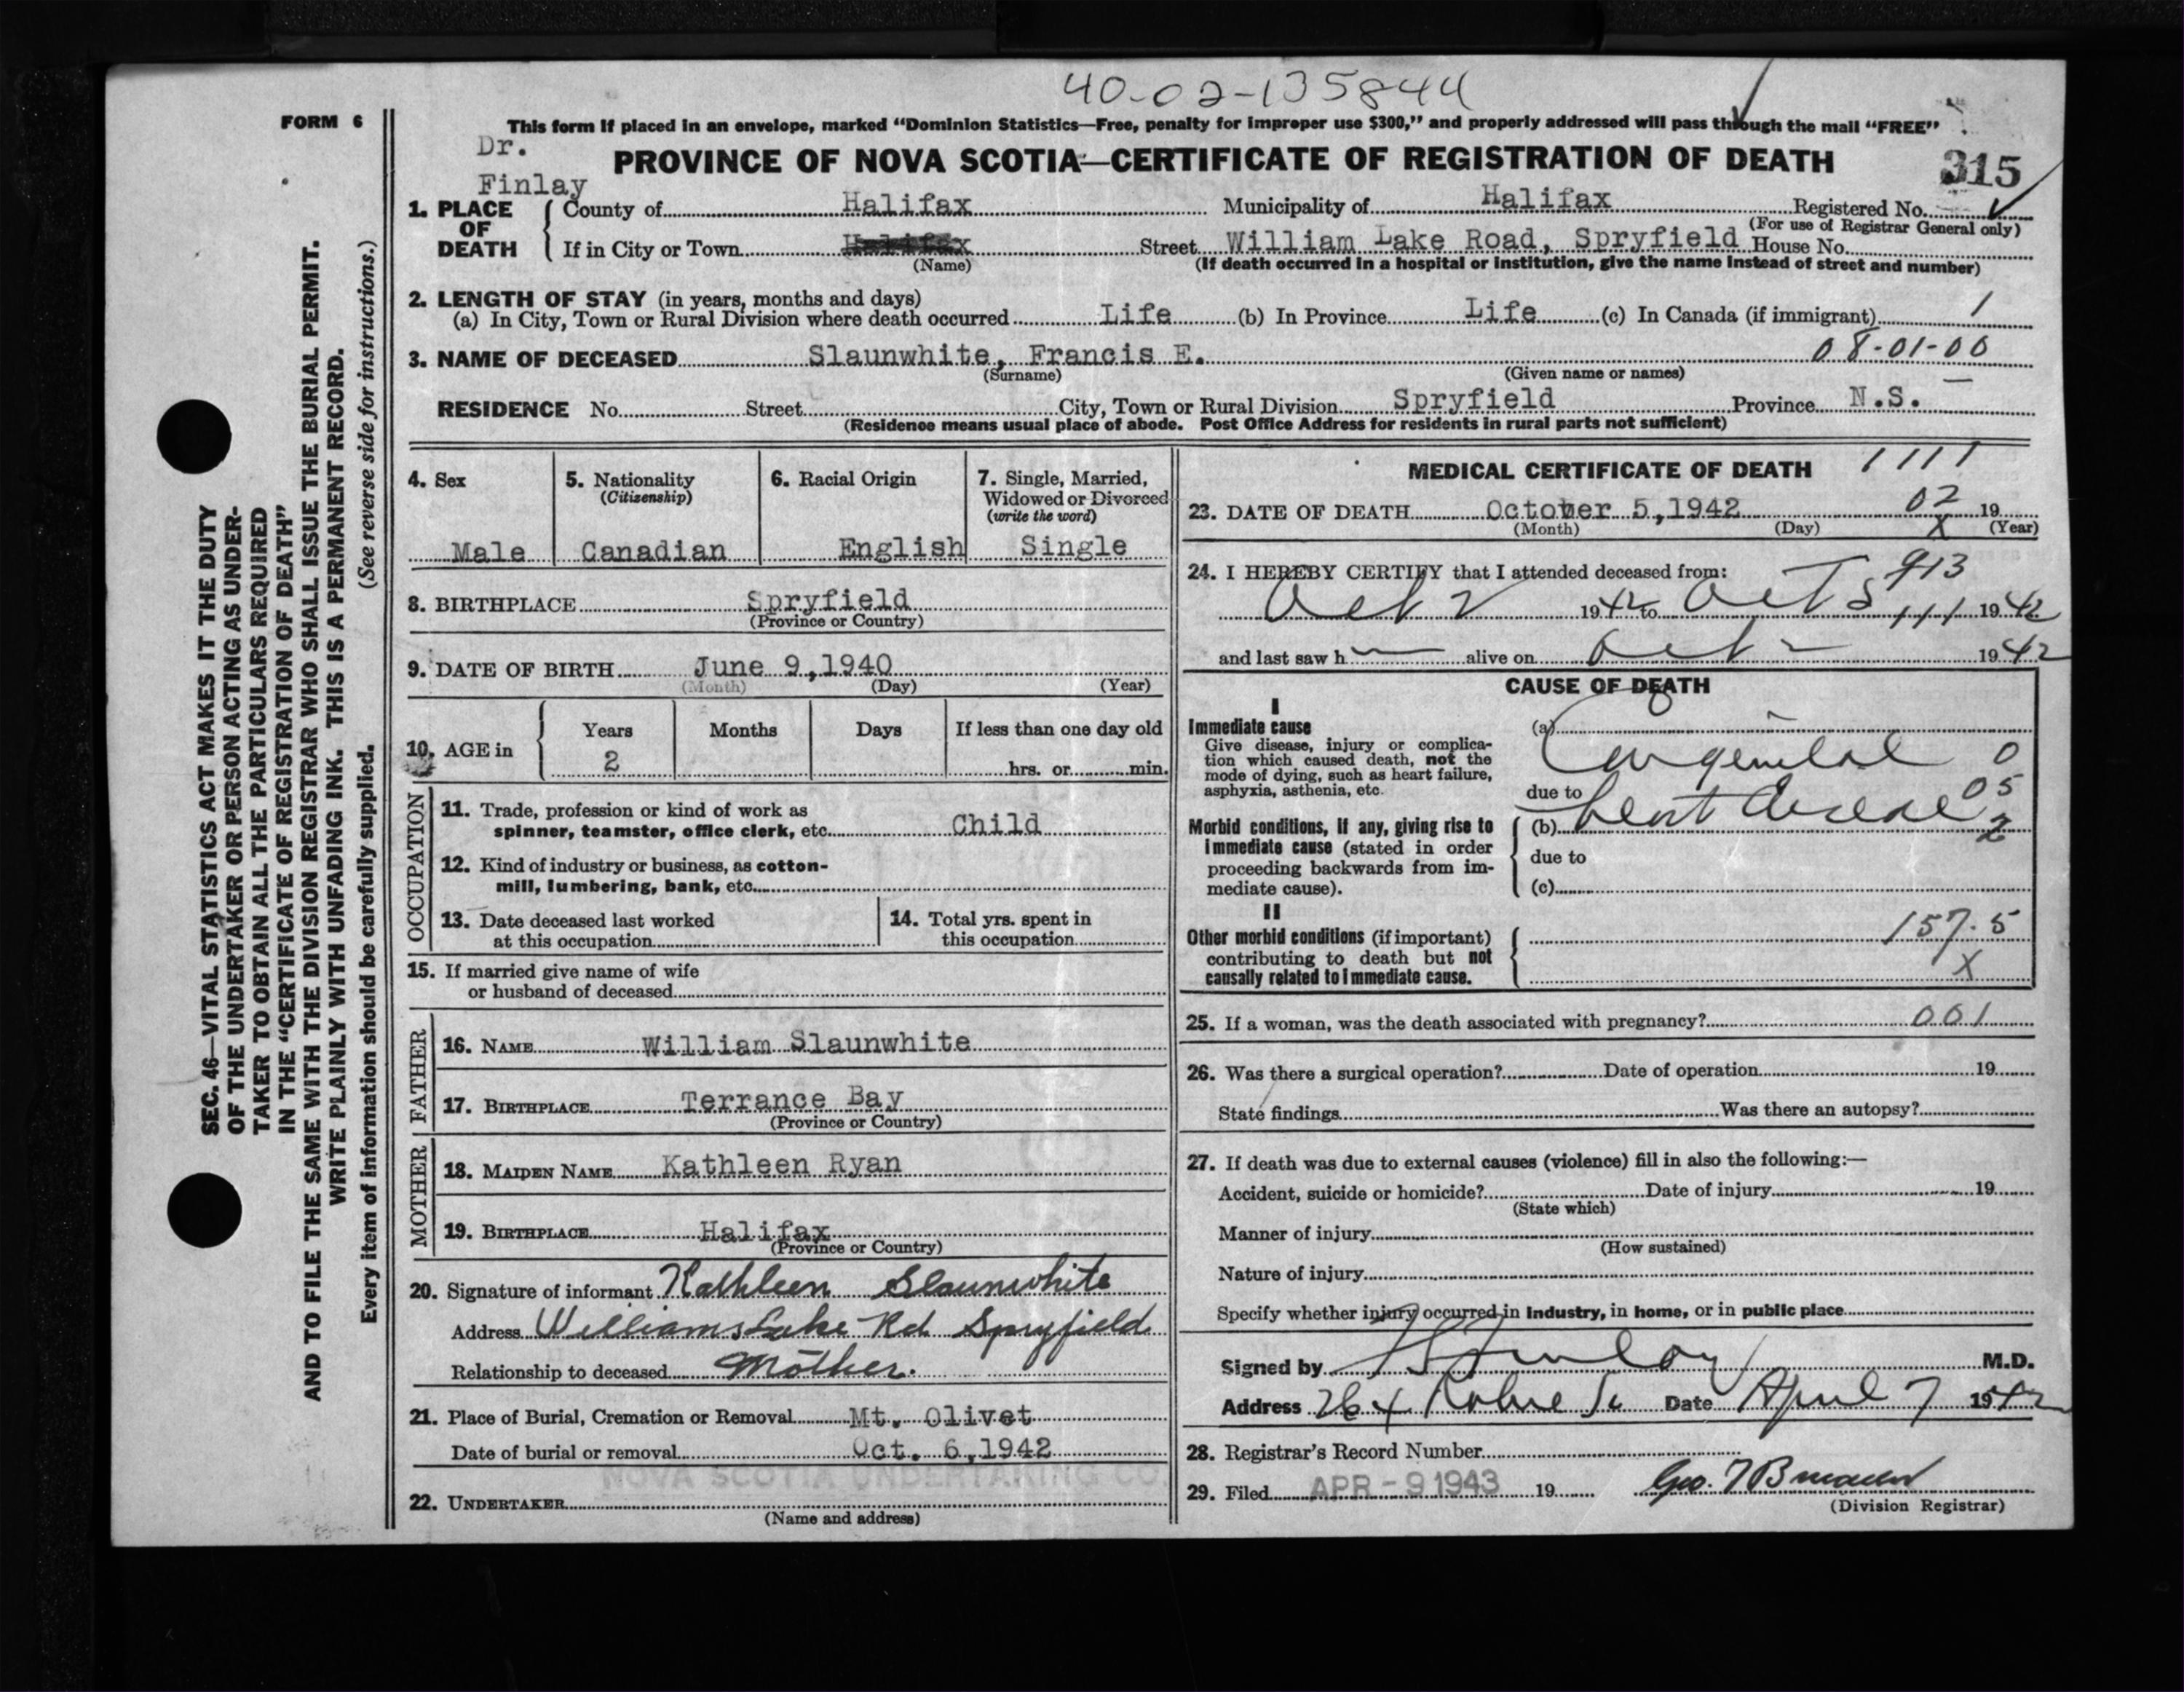 40-02-135844
FORM 6
This form if placed in an envelope, marked “Dominion Statistics—Free, penalty for improper use $300,” and properly addressed will pass through the mail “FREE”
Dr. Finlay
PROVINCE OF NOVA SCOTIA—CERTIFICATE OF REGISTRATION OF DEATH
315
1. PLACE OF DEATH
County of Halifax Municipality of Halifax Registered No.
(For use of Registrar General only)
If in City or Town Halifax Street William Lake Road, Spryfield House No.
(Name) (If death occurred in a hospital or institution, give the name instead of street and number)
2. LENGTH OF STAY (in years, months and days)
(a) In City, Town or Rural Division where death occurred Life (b) In Province Life (c) In Canada (if immigrant) 1
3. NAME OF DECEASED Slaunwhite, Francis E. 08-01-00
(Surname) (Given name or names)
RESIDENCE No. Street City, Town or Rural Division Spryfield Province N.S.
(Residence means usual place of abode. Post Office Address for residents in rural parts not sufficient)
4. Sex
Male
5. Nationality
(Citizenship)
Canadian
6. Racial Origin
English
7. Single, Married,
Widowed or Divorced
(write the word)
Single
8. BIRTHPLACE Spryfield
(Province or Country)
9. DATE OF BIRTH June 9, 1940
(Month) (Day) (Year)
10. AGE in
Years Months Days If less than one day old
2 hrs. or min.
OCCUPATION
11. Trade, profession or kind of work as
spinner, teamster, office clerk, etc. Child
12. Kind of industry or business, as cotton-
mill, lumbering, bank, etc.
13. Date deceased last worked
at this occupation
14. Total yrs. spent in
this occupation
15. If married give name of wife
or husband of deceased
FATHER
16. NAME William Slaunwhite
17. BIRTHPLACE Terrance Bay
(Province or Country)
MOTHER
18. MAIDEN NAME Kathleen Ryan
19. BIRTHPLACE Halifax
(Province or Country)
20. Signature of informant Kathleen Slaunwhite
Address Williams Lake Rd Spryfield
Relationship to deceased Mother.
21. Place of Burial, Cremation or Removal Mt. Olivet
Date of burial or removal Oct. 6, 1942
NOVA SCOTIA UNDERTAKING CO.
22. UNDERTAKER
(Name and address)
MEDICAL CERTIFICATE OF DEATH 1111
23. DATE OF DEATH October 5, 1942 02 19
(Month) (Day) X (Year)
24. I HEREBY CERTIFY that I attended deceased from: 913
Oct 2 1942 to Oct 5 111 1942
and last saw h alive on Oct 2 1942
CAUSE OF DEATH
I
Immediate cause
Give disease, injury or complica-
tion which caused death, not the
mode of dying, such as heart failure,
asphyxia, asthenia, etc.
(a) Congenital 0
due to
(b) heart disease 05
2
Morbid conditions, if any, giving rise to
immediate cause (stated in order
proceeding backwards from im-
mediate cause).
due to
(c)
II
Other morbid conditions (if important)
contributing to death but not
causally related to immediate cause.
157.5
X
25. If a woman, was the death associated with pregnancy? 001
26. Was there a surgical operation? Date of operation 19
State findings Was there an autopsy?
27. If death was due to external causes (violence) fill in also the following:—
Accident, suicide or homicide? Date of injury 19
(State which)
Manner of injury
(How sustained)
Nature of injury
Specify whether injury occurred in industry, in home, or in public place
Signed by Finlay M.D.
Address Date April 7 1942
28. Registrar's Record Number
29. Filed APR - 9 1943 19
(Division Registrar)
SEC. 46—VITAL STATISTICS ACT MAKES IT THE DUTY
OF THE UNDERTAKER OR PERSON ACTING AS UNDER-
TAKER TO OBTAIN ALL THE PARTICULARS REQUIRED
IN THE “CERTIFICATE OF REGISTRATION OF DEATH”
AND TO FILE THE SAME WITH THE DIVISION REGISTRAR WHO SHALL ISSUE THE BURIAL PERMIT.
WRITE PLAINLY WITH UNFADING INK. THIS IS A PERMANENT RECORD.
Every item of information should be carefully supplied. (See reverse side for instructions.)